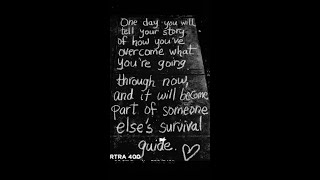 One day you will
tell your story
of how you've
overcome what
you're going
through now,
and it will become
part of someone
else's survival
guide.
RTRA 400